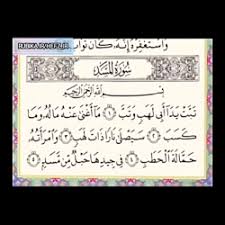 وَاسْتَغْفِرْهُ إِنَّهُ كَانَ تَوَّابًا
سُورَةُ الْمَسَدِ
بِسْمِ اللَّهِ الرَّحْمَٰنِ الرَّحِيمِ
تَبَّتْ يَدَا أَبِي لَهَبٍ وَتَبَّ ١ مَا أَغْنَىٰ عَنْهُ مَالُهُ وَمَا
كَسَبَ ٢ سَيَصْلَىٰ نَارًا ذَاتَ لَهَبٍ ٣ وَامْرَأَتُهُ
حَمَّالَةَ الْحَطَبِ ٤ فِي جِيدِهَا حَبْلٌ مِّن مَّسَدٍ ٥